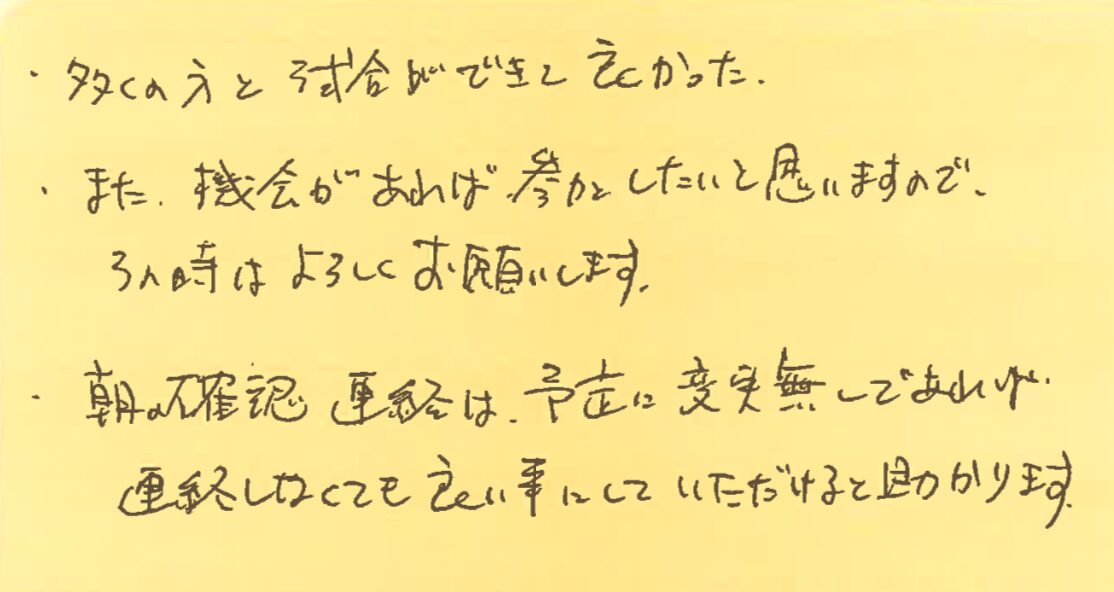 ・多くの方と試合ができて良かった.
・また.機会があれば参加したいと思いますので、
その時はよろしくお願いします.
・朝の確認連絡は、予定に変更無しであれば
連絡しなくても良い事にしていただけると助かります.